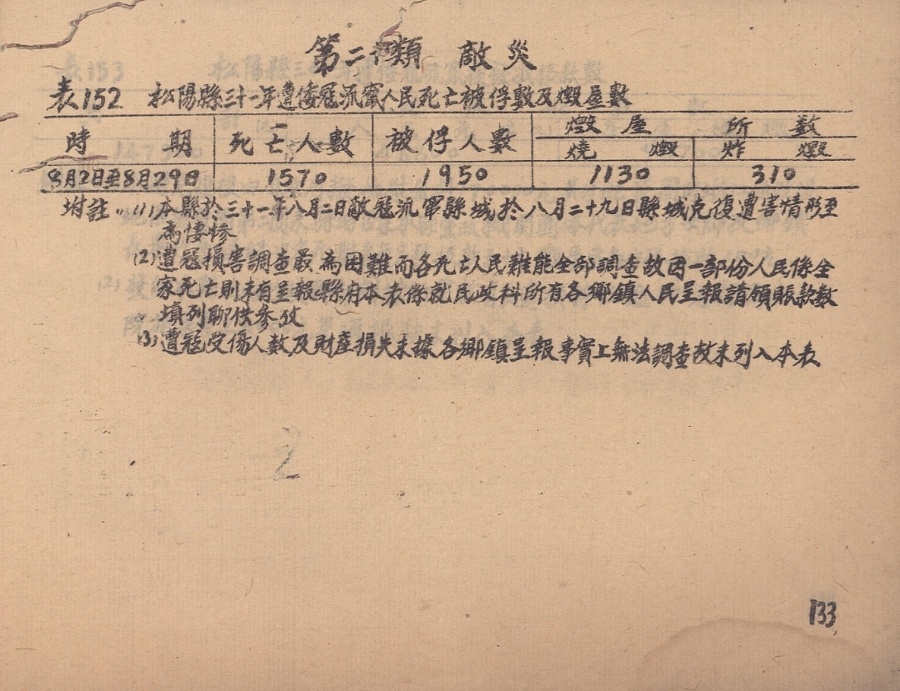 第二十類 敵災
表152 松陽縣三十一年遭倭寇流竄人民死亡被俘數及燬屋數
時期 死亡人數 被俘人數 燬屋所數
燒燬 炸燬
8月2日至8月29日 1570 1950 1130 310
坿註:(1)本縣於三十一年八月二日敵寇流軍縣城於八月二十九日縣城克復遭害情形至
為悽慘
(2)遭寇損害調查最為困難而各死亡人民難能全部調查故因一部份人民係全
家死亡則未有呈報縣府本表係就民政科所有各鄉鎮人民呈報請領賬款數
填列聊供參攷
(3)遭寇受傷人數及財產損失未據各鄉鎮呈報事實上無法調查故未列入本表
133